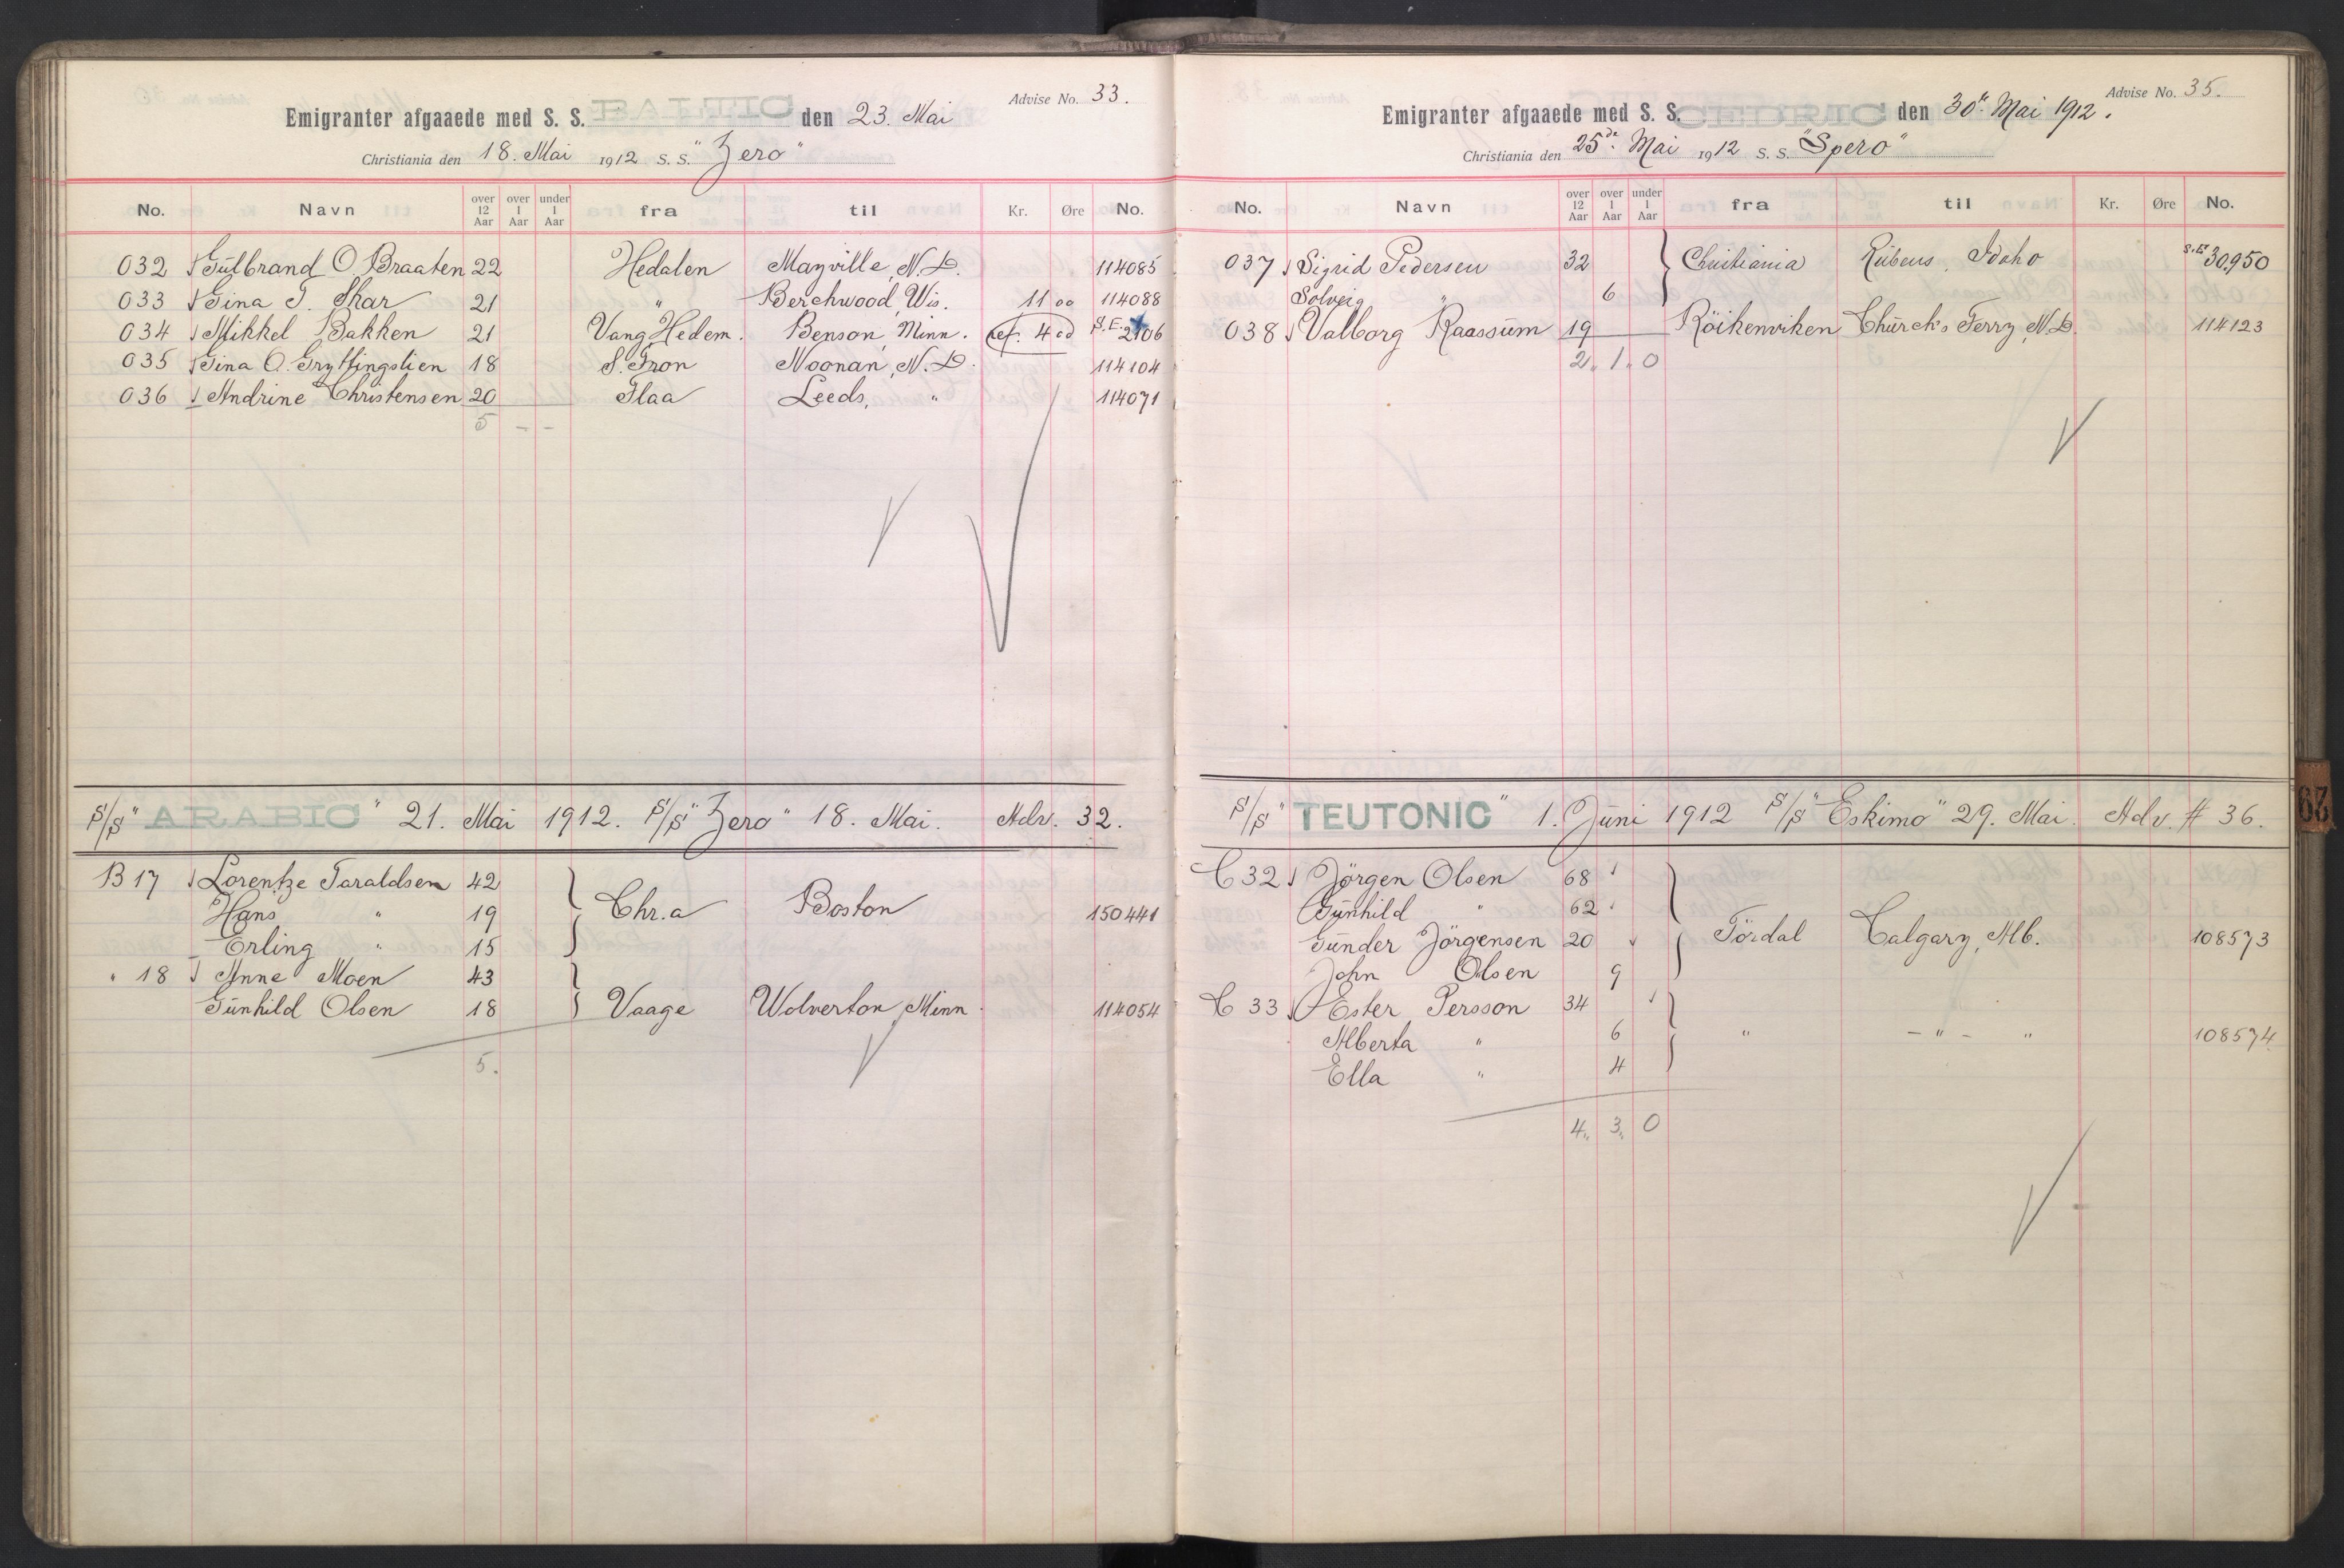 Advise No. 33.
Emigranter afgaaede med S. S. BALTIC den 23. Mai
Christiania den 18. Mai 1912 S. S. "Zero"
No. Navn over 12 Aar over 1 Aar under 1 Aar fra til Kr. Øre No.
032 Gulbrand O. Braaten 22 Hedalen Mayville, N. D. 114085
033 Gina T. Skar 21 " Berchwood, Wis. 11 00 114088
034 Mikkel Bakken 21 Vang, Hedem. Benson, Minn. ref. 4 00 S.E. 2106
035 Tina O. Gryttingslien 18 S. Fron Noonan, N. D. 114104
036 Andrine Christensen 20 Flaa Leeds, " 114071
5 - -
S/S "ARABIC" 21. Mai 1912. S/S "Zero" 18. Mai. Adv. 32.
B 17 Lorentze Taraldsen 42
Hans " 19 Chr.a Boston 150441
Erling " 15
" 18 Anne Moen 43
Gunhild Olsen 18 Vaage Wolverton, Minn. 114054
5.
Advise No. 35.
Emigranter afgaaede med S. S. CEDRIC den 30te Mai 1912.
Christiania den 25de Mai 1912 S. S. "Spero"
No. Navn over 12 Aar over 1 Aar under 1 Aar fra til Kr. Øre No.
037 Sigrid Pedersen 32 Christiania Rubens, Idaho S.E. 30950
Solveig " 6
038 Valborg Raassum 19 Röikenviken Church's Ferry, N. D. 114123
2 " 1 " 0
S/S "TEUTONIC" 1. Juni 1912 S/S "Eskimo" 29. Mai. Adv. # 36.
C 32 Jörgen Olsen 68
Gunhild " 62
Gunder Jörgensen 20 Tördal Calgary, Alb. 108573
John Olsen 9
C 33 Ester Persson 34
Alberta " 6 " - " - " 108574
Ella " 4
4 " 3 " 0